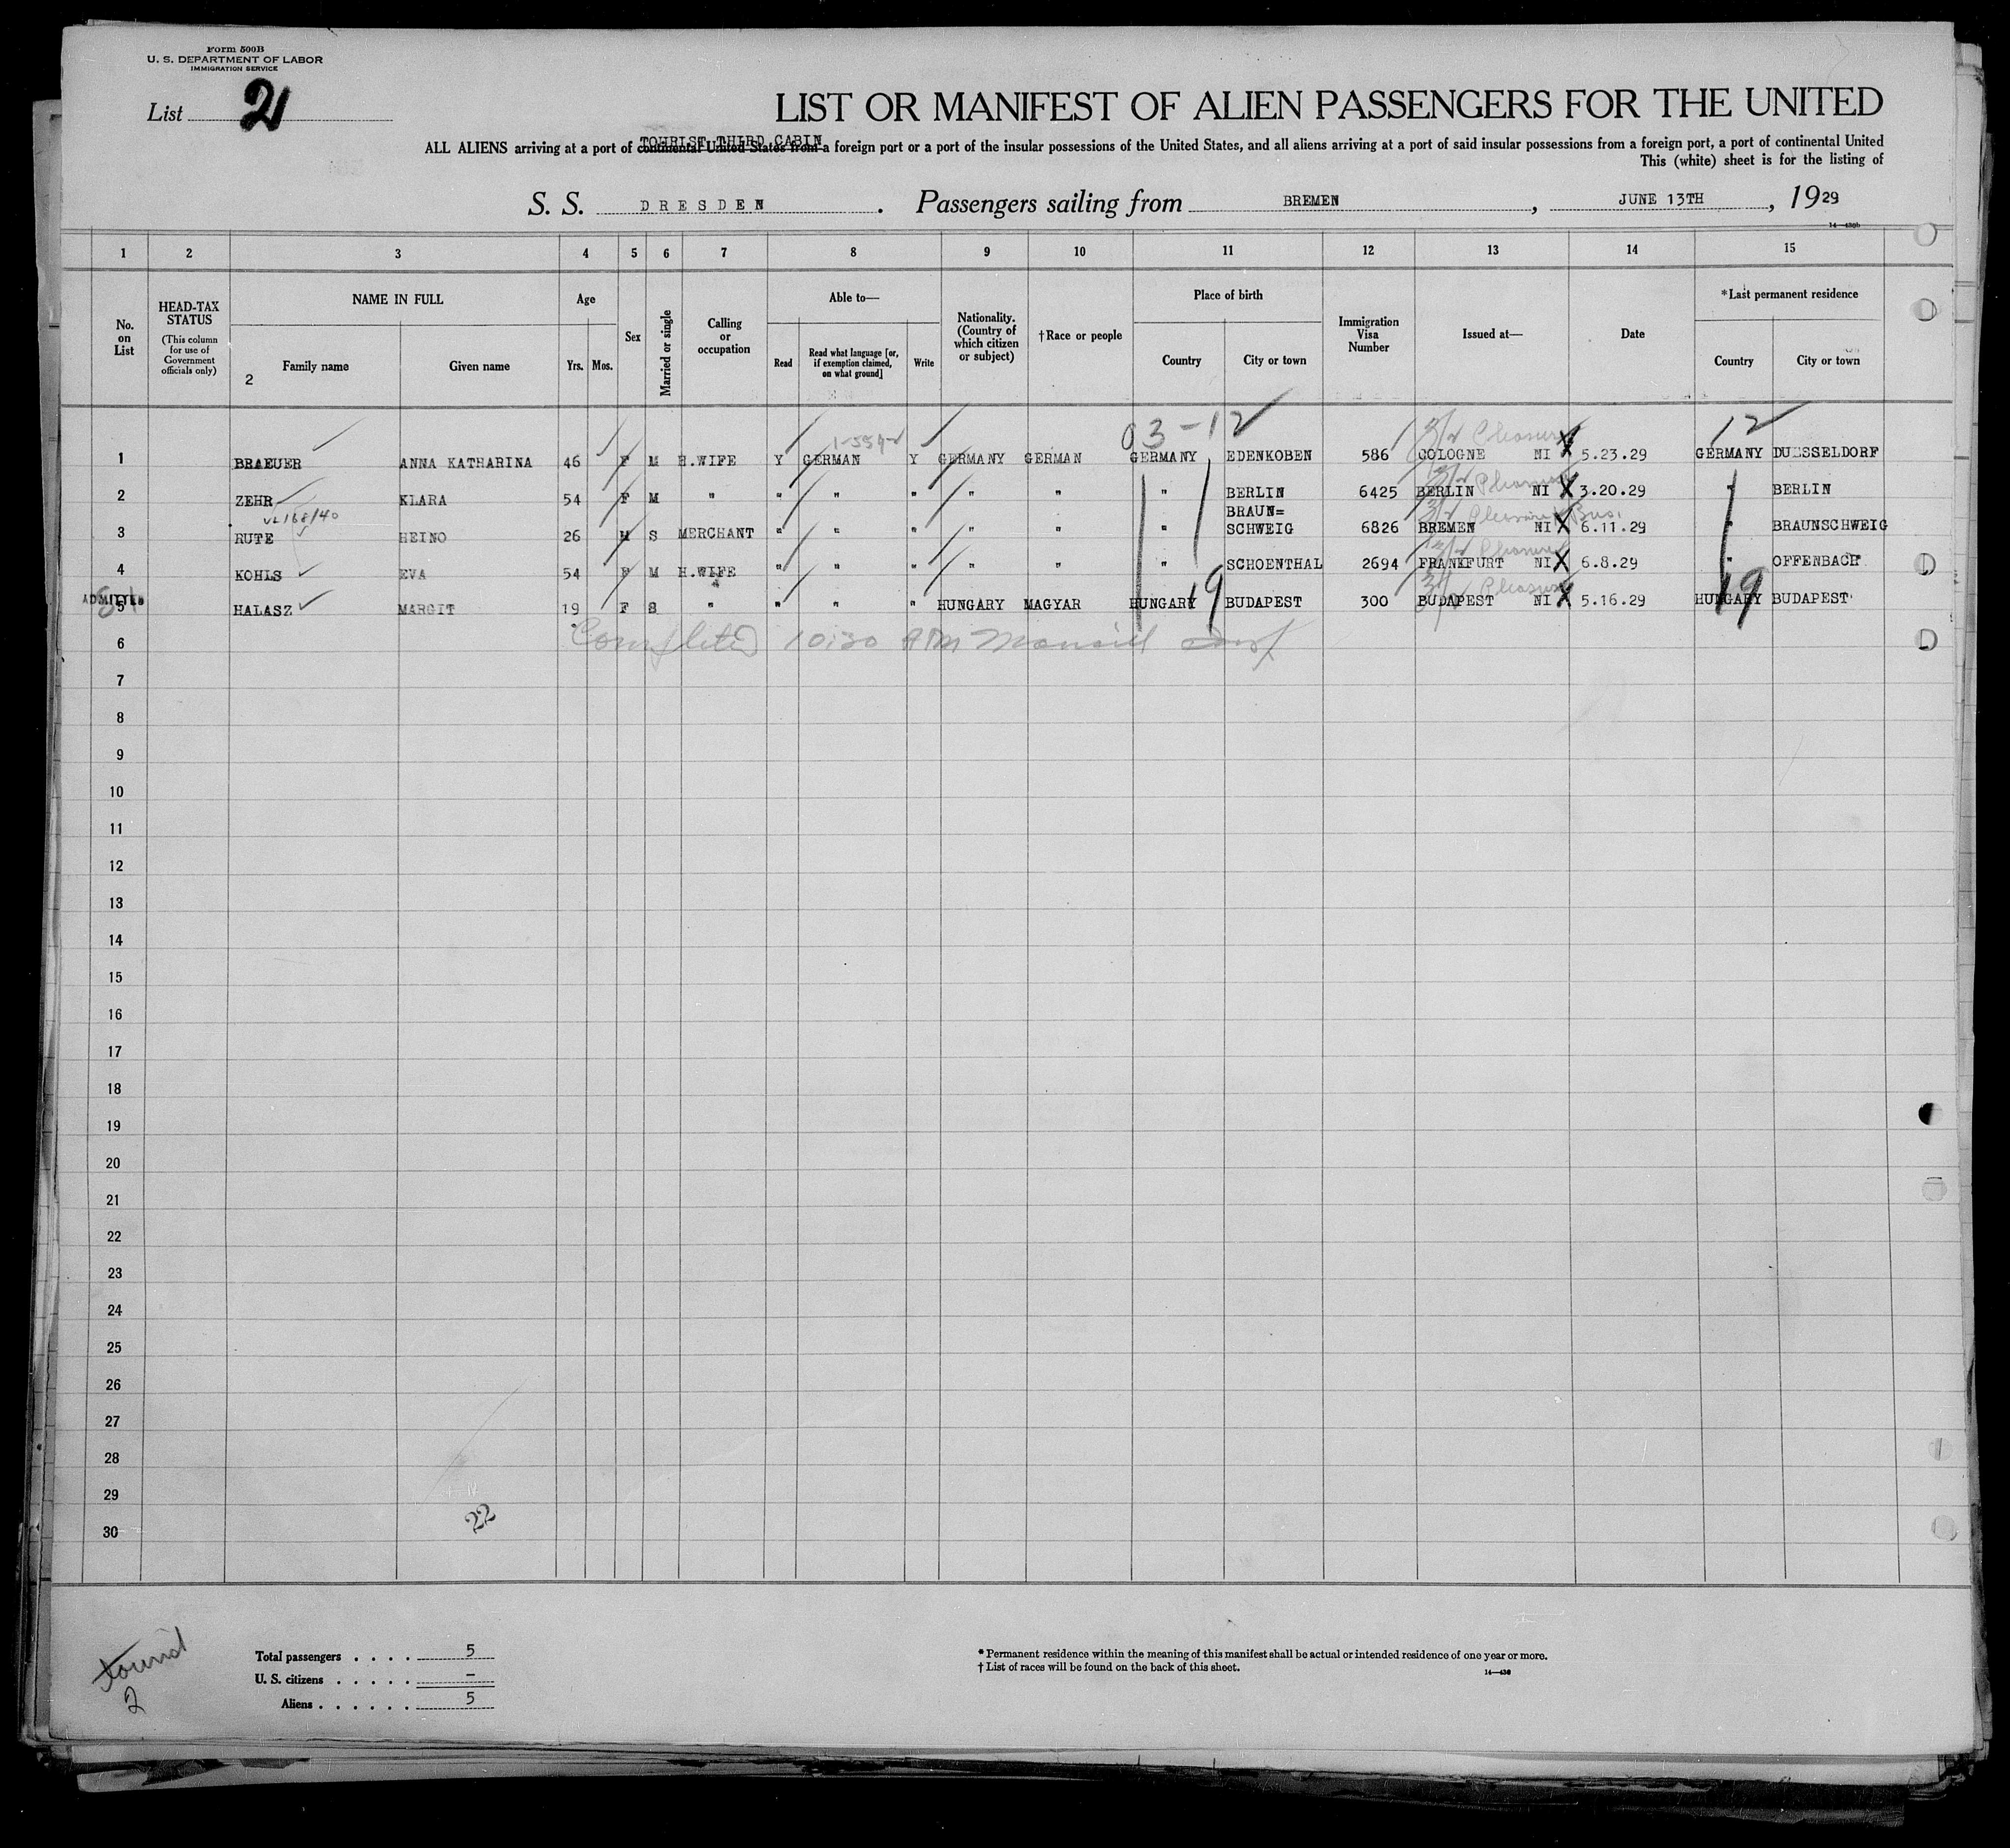 Form 500B
U. S. DEPARTMENT OF LABOR
IMMIGRATION SERVICE
List 21
LIST OR MANIFEST OF ALIEN PASSENGERS FOR THE UNITED
TOURIST THIRD CABIN
ALL ALIENS arriving at a port of continental United States from a foreign port or a port of the insular possessions of the United States, and all aliens arriving at a port of said insular possessions from a foreign port, a port of continental United
This (white) sheet is for the listing of
S. S. DRESDEN . Passengers sailing from BREMEN , JUNE 13TH , 1929
1 2 3 4 5 6 7 8 9 10 11 12 13 14 15
No. on List
HEAD-TAX STATUS (This column for use of Government officials only)
NAME IN FULL
Family name
Given name
2
Age
Yrs. Mos.
Sex
Married or single
Calling or occupation
Able to—
Read
Read what language [or, if exemption claimed, on what ground]
Write
Nationality. (Country of which citizen or subject)
†Race or people
Place of birth
Country
City or town
Immigration Visa Number
Issued at—
Date
*Last permanent residence
Country
City or town
03-12 12
Pleasure
1 BRAEUER ANNA KATHARINA 46 F M H.WIFE Y GERMAN Y GERMANY GERMAN GERMANY EDENKOBEN 586 COLOGNE NI 5.23.29 GERMANY DUESSELDORF
Pleasure
2 ZEHR KLARA 54 F M " " " " " " " BERLIN 6425 BERLIN NI 3.20.29 " BERLIN
Pleasure Bus.
3 RUTE HEINO 26 M S MERCHANT " " " " " " BRAUN=SCHWEIG 6826 BREMEN NI 6.11.29 " BRAUNSCHWEIG
Pleasure
4 KOHLS EVA 54 F M H.WIFE " " " " " " SCHOENTHAL 2694 FRANKFURT NI 6.8.29 " OFFENBACH
Pleasure
ADMITTED
5 HALASZ MARGIT 19 F S " " " " HUNGARY MAGYAR HUNGARY 19 BUDAPEST 300 BUDAPEST NI 5.16.29 HUNGARY 19 BUDAPEST
6 Completed 10:30 AM
7
8
9
10
11
12
13
14
15
16
17
18
19
20
21
22
23
24
25
26
27
28
29
30
22
2
Total passengers . . . . 5
U. S. citizens . . . . . –
Aliens . . . . . . 5
* Permanent residence within the meaning of this manifest shall be actual or intended residence of one year or more.
† List of races will be found on the back of this sheet.
14—430